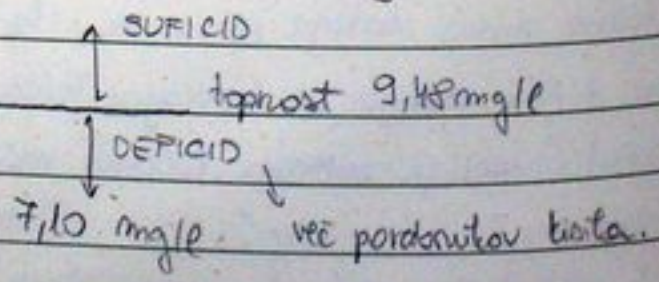 SUFICID
topnost 9,48 mg/l
DEFICID
7,10 mg/l. več porabnikov kisika.